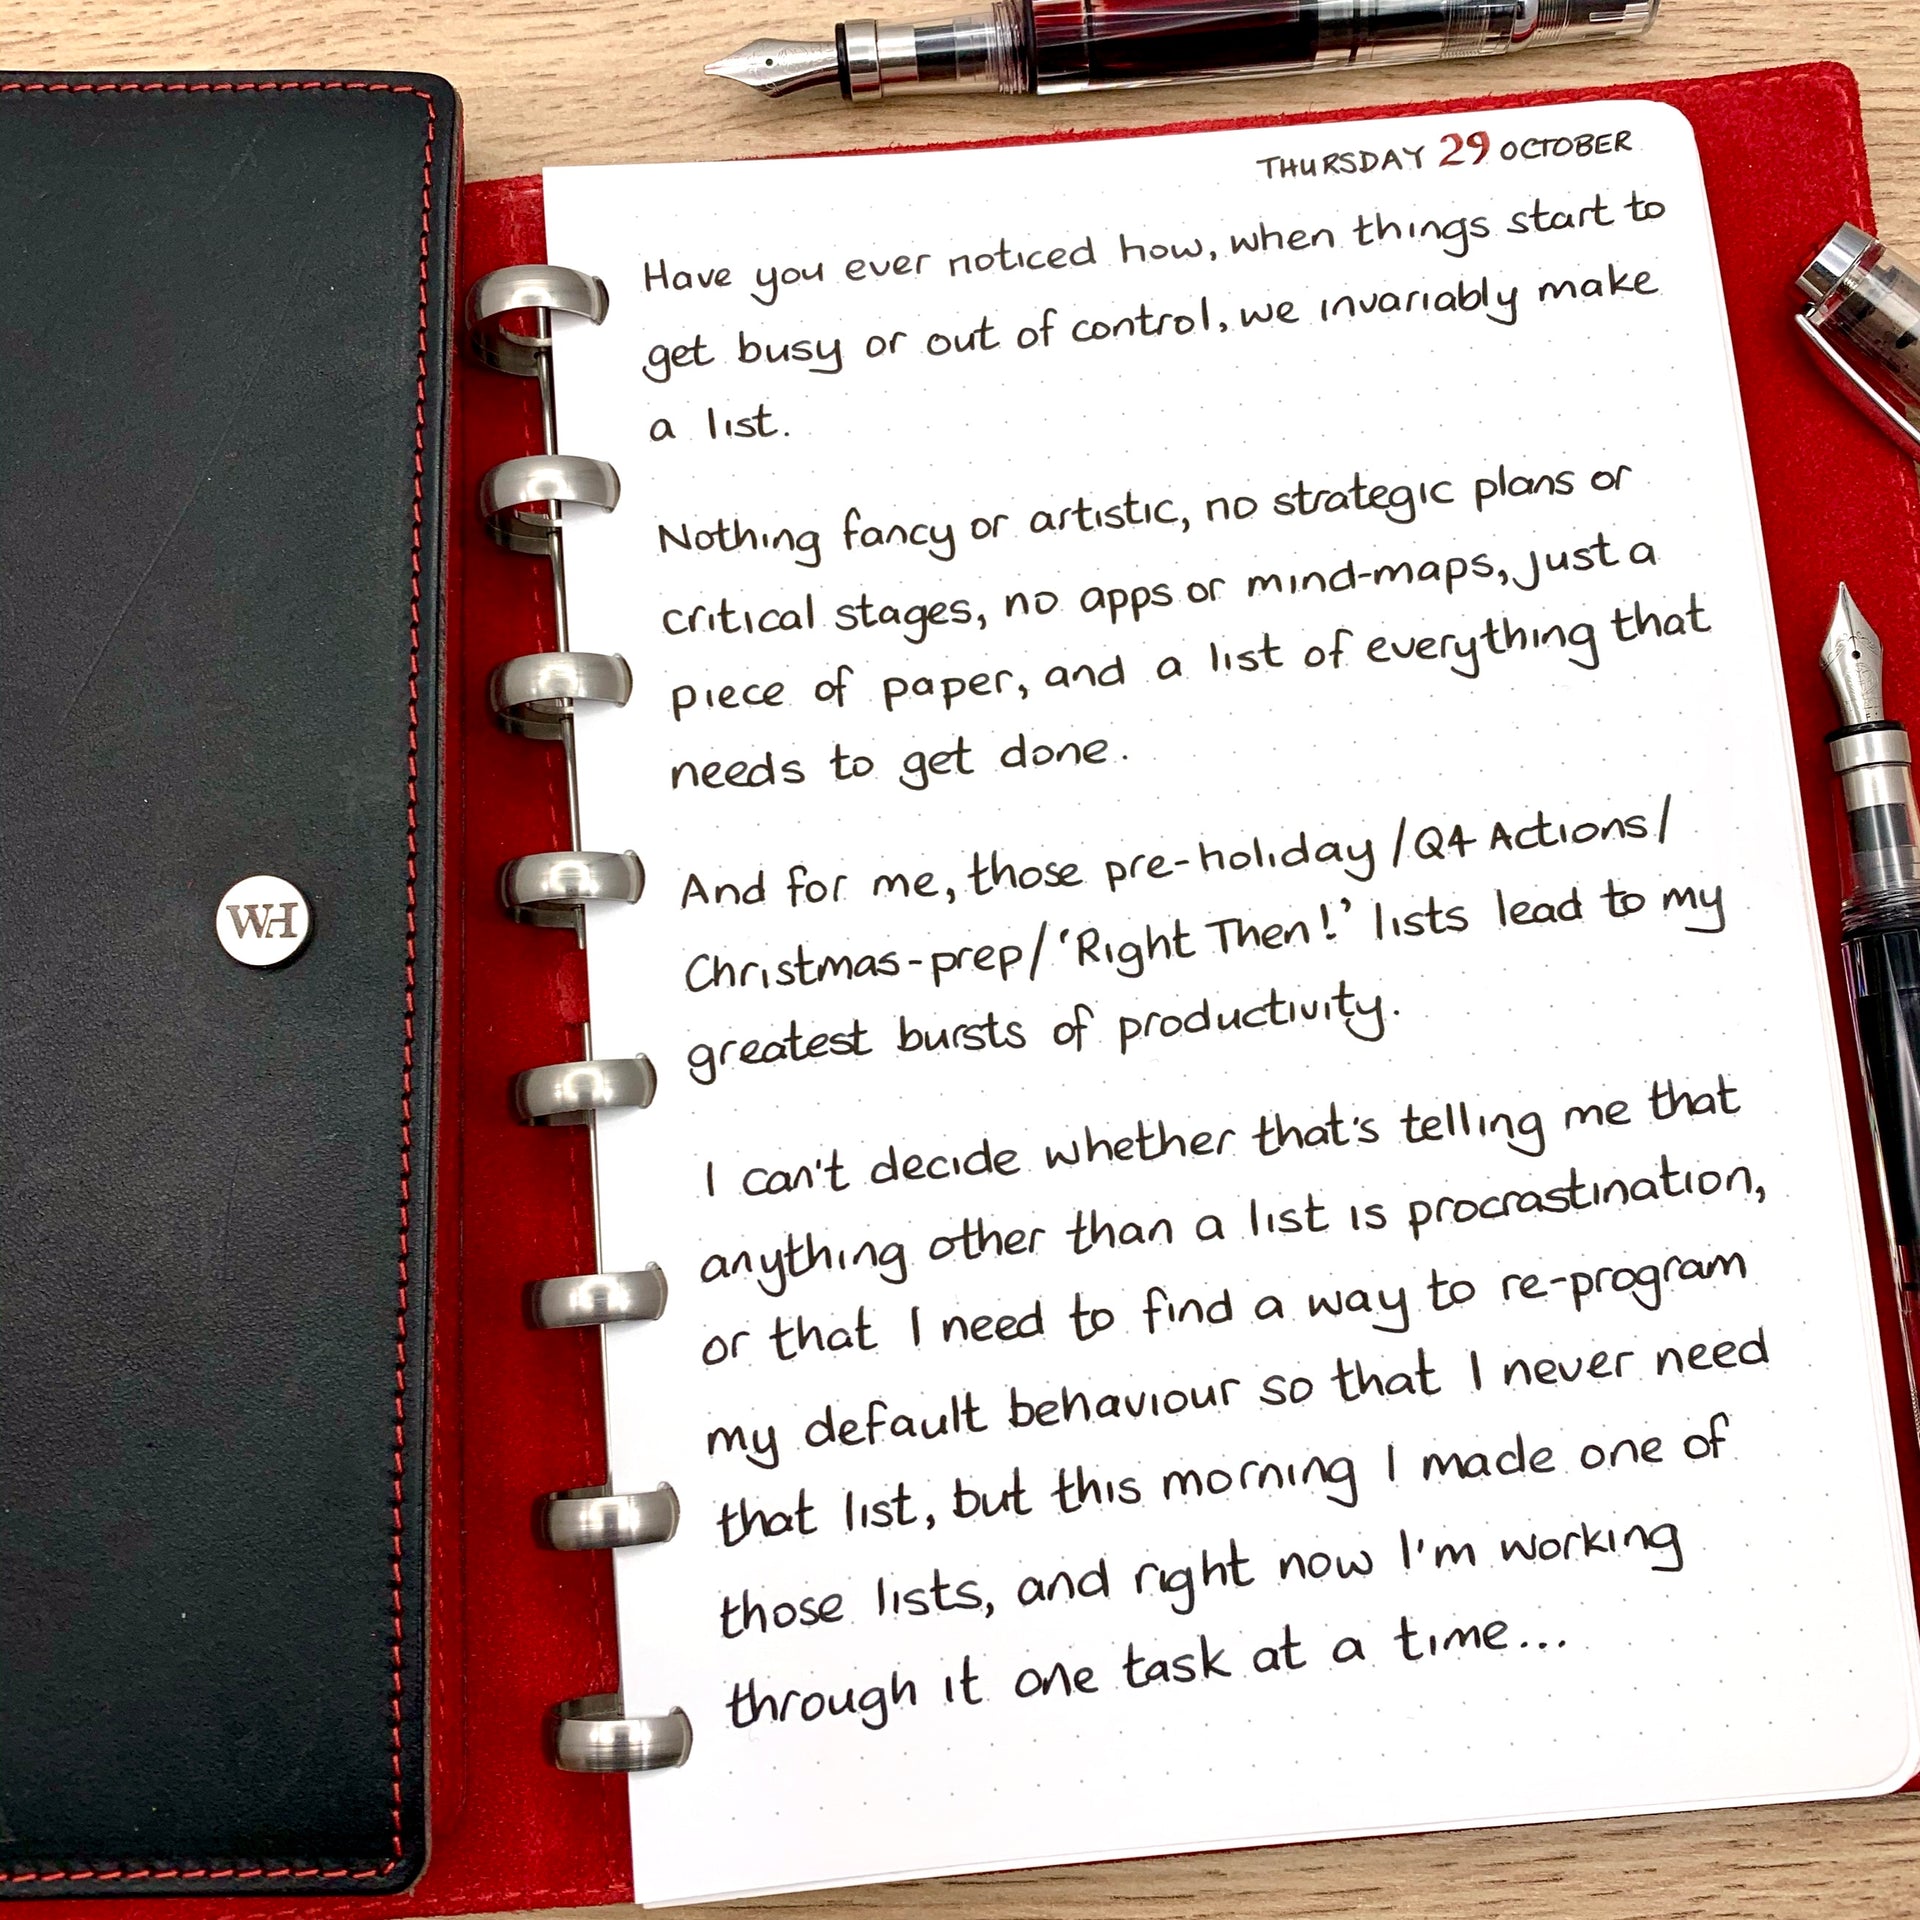 THURSDAY 29 OCTOBER
Have you ever noticed how, when things start to
get busy or out of control, we invariably make
a list.
Nothing fancy or artistic, no strategic plans or
critical stages, no apps or mind-maps, just a
piece of paper, and a list of everything that
needs to get done.
And for me, those pre-holiday/Q4 Actions/
Christmas-prep/'Right Then!' lists lead to my
greatest bursts of productivity.
I can't decide whether that's telling me that
anything other than a list is procrastination,
or that I need to find a way to re-program
my default behaviour so that I never need
that list, but this morning I made one of
those lists, and right now I'm working
through it one task at a time...
WH